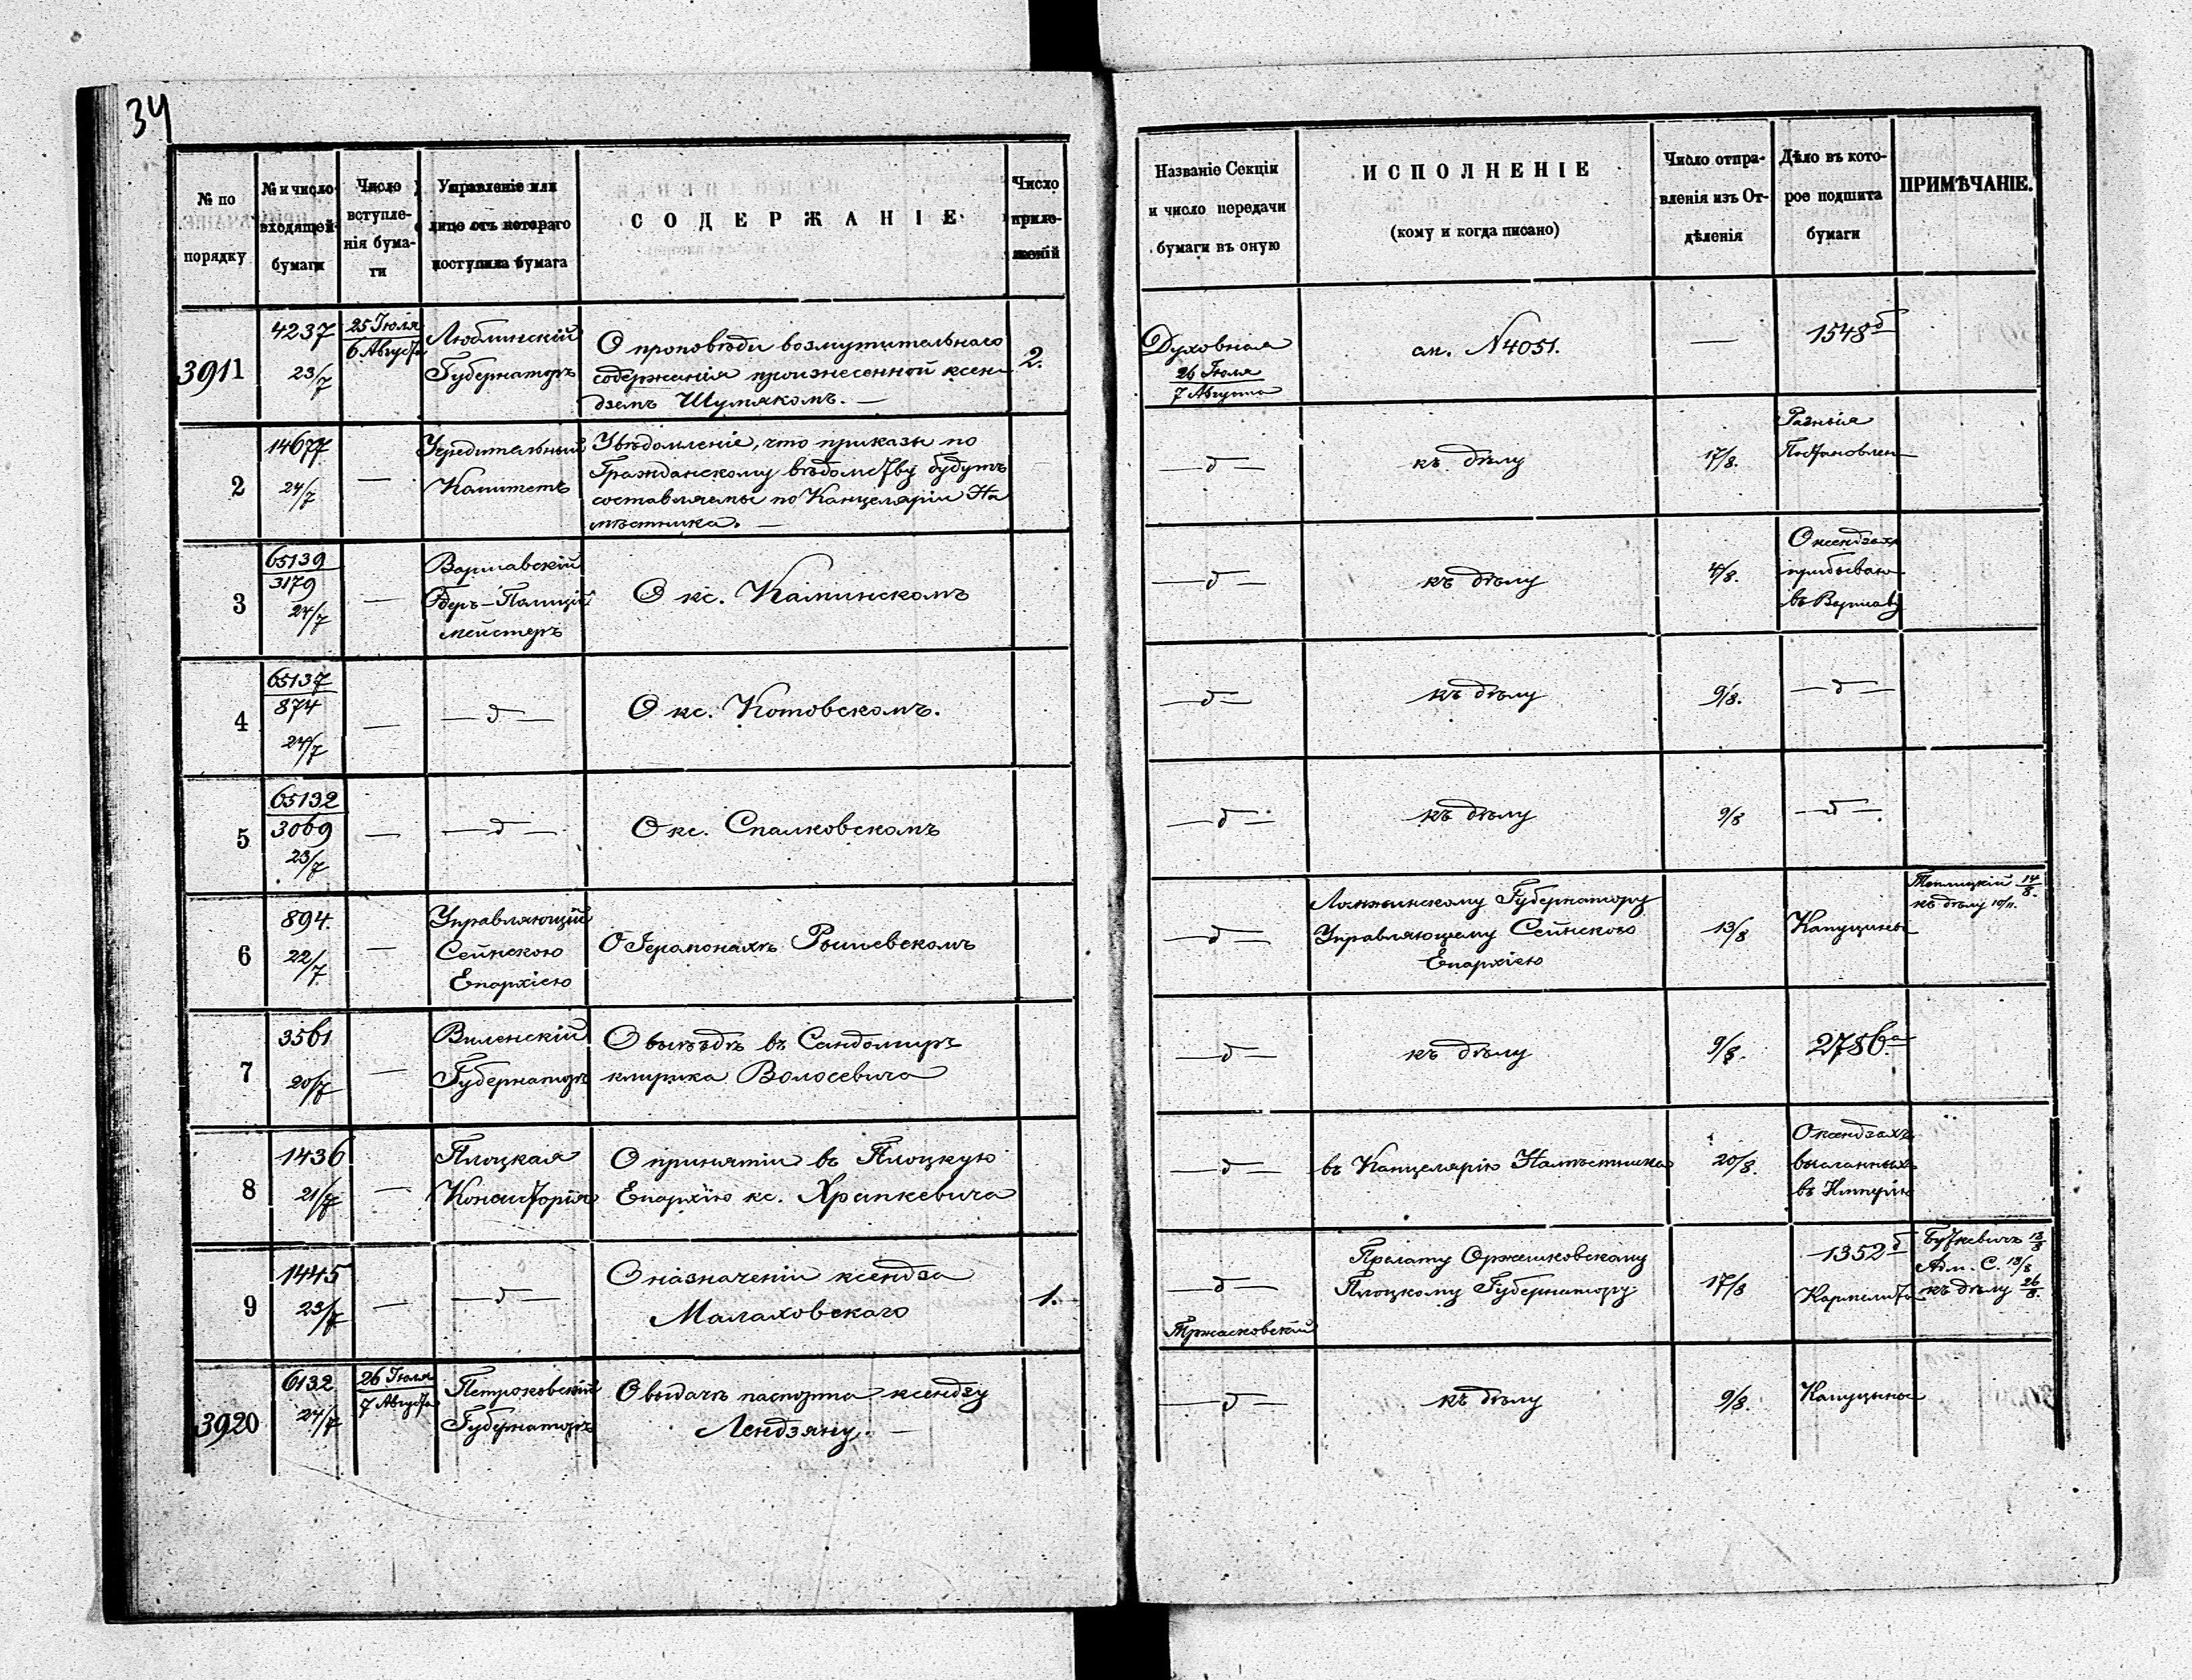 34
№ по порядку
№ и число входящей бумаги
Число вступле-нія бума-ги
Управленіе или лице отъ котораго поступила бумага
СОДЕРЖАНІЕ
Число прило-женій
Названіе Секціи и число передачи бумаги въ оную
ИСПОЛНЕНІЕ
(кому и когда писано)
Число отпра-вленія изъ От-дѣленія
Дѣло въ кото-рое подшита бумаги
ПРИМѢЧАНІЕ.
3911
4237
23/7
25 Іюля
6 Августа
Люблинскій
Губернаторъ
О проповѣди возмутительнаго
содержанія произнесенной ксен-
дземъ Шумякомъ. —
2.
Духовная
26 Іюля
7 Августа
см. N 4051.
—
1548 б
2
14677
24/7
—
Учредительный
Комитетъ
Увѣдомленіе, что приказы по
Гражданскому вѣдомству будутъ
составляемы по Канцеляріи На
мѣстника. —
— д —
къ дѣлу
17/8.
Разныя
Постановлен
3
65139
3179
24/7
—
Варшавскій
Оберъ-Полиціи
мейстеръ
О кс. Каминскомъ
— д —
къ дѣлу
4/8.
О ксендзахъ
прибываю
въ Варшаву
4
65137
874
24/7
—
— д —
О кс. Котовскомъ.
— д —
къ дѣлу
9/8.
— д —
5
65132
3069
23/7
—
— д —
О кс. Спалковскомъ
— д —
къ дѣлу
9/8
— д —
6
894.
22/7.
—
Управляющій
Сейнскою
Епархіею
О Іеромонахѣ Рышевскомъ
— д —
Ломжинскому Губернатору
Управляющему Сейнскою
Епархіею
13/8
Капуцины
14/8.
къ дѣлу 10/11.
7
3561
20/7
—
Виленскій
Губернаторъ
О выѣздѣ въ Сандомиръ
клирика Волосевича
— д —
къ дѣлу
9/8.
2786 а
8
1436
21/7
—
Плоцкая
Консисторія
О принятіи въ Плоцкую
Епархію кс. Храпкевича
— д —
въ Канцелярію Намѣстника
20/8.
О ксендзахъ
высланныхъ
въ Имперію
9
1445
23/7
—
— д —
О назначеніи ксендза
Малаховскаго
1.
— д —
Тржасковскій
Прелату Оржешковскому
Плоцкому Губернатору
17/8
1352 б
Кармелиты
Буткевичъ 13/8
Адм. С. 13/8
къ дѣлу 26/8.
3920
6132
24/7
26 Іюля
7 Августа
Петроковскій
Губернаторъ
О выдачѣ паспорта ксендзу
Лендзяну. —
— д —
къ дѣлу
9/8.
Капуцыны